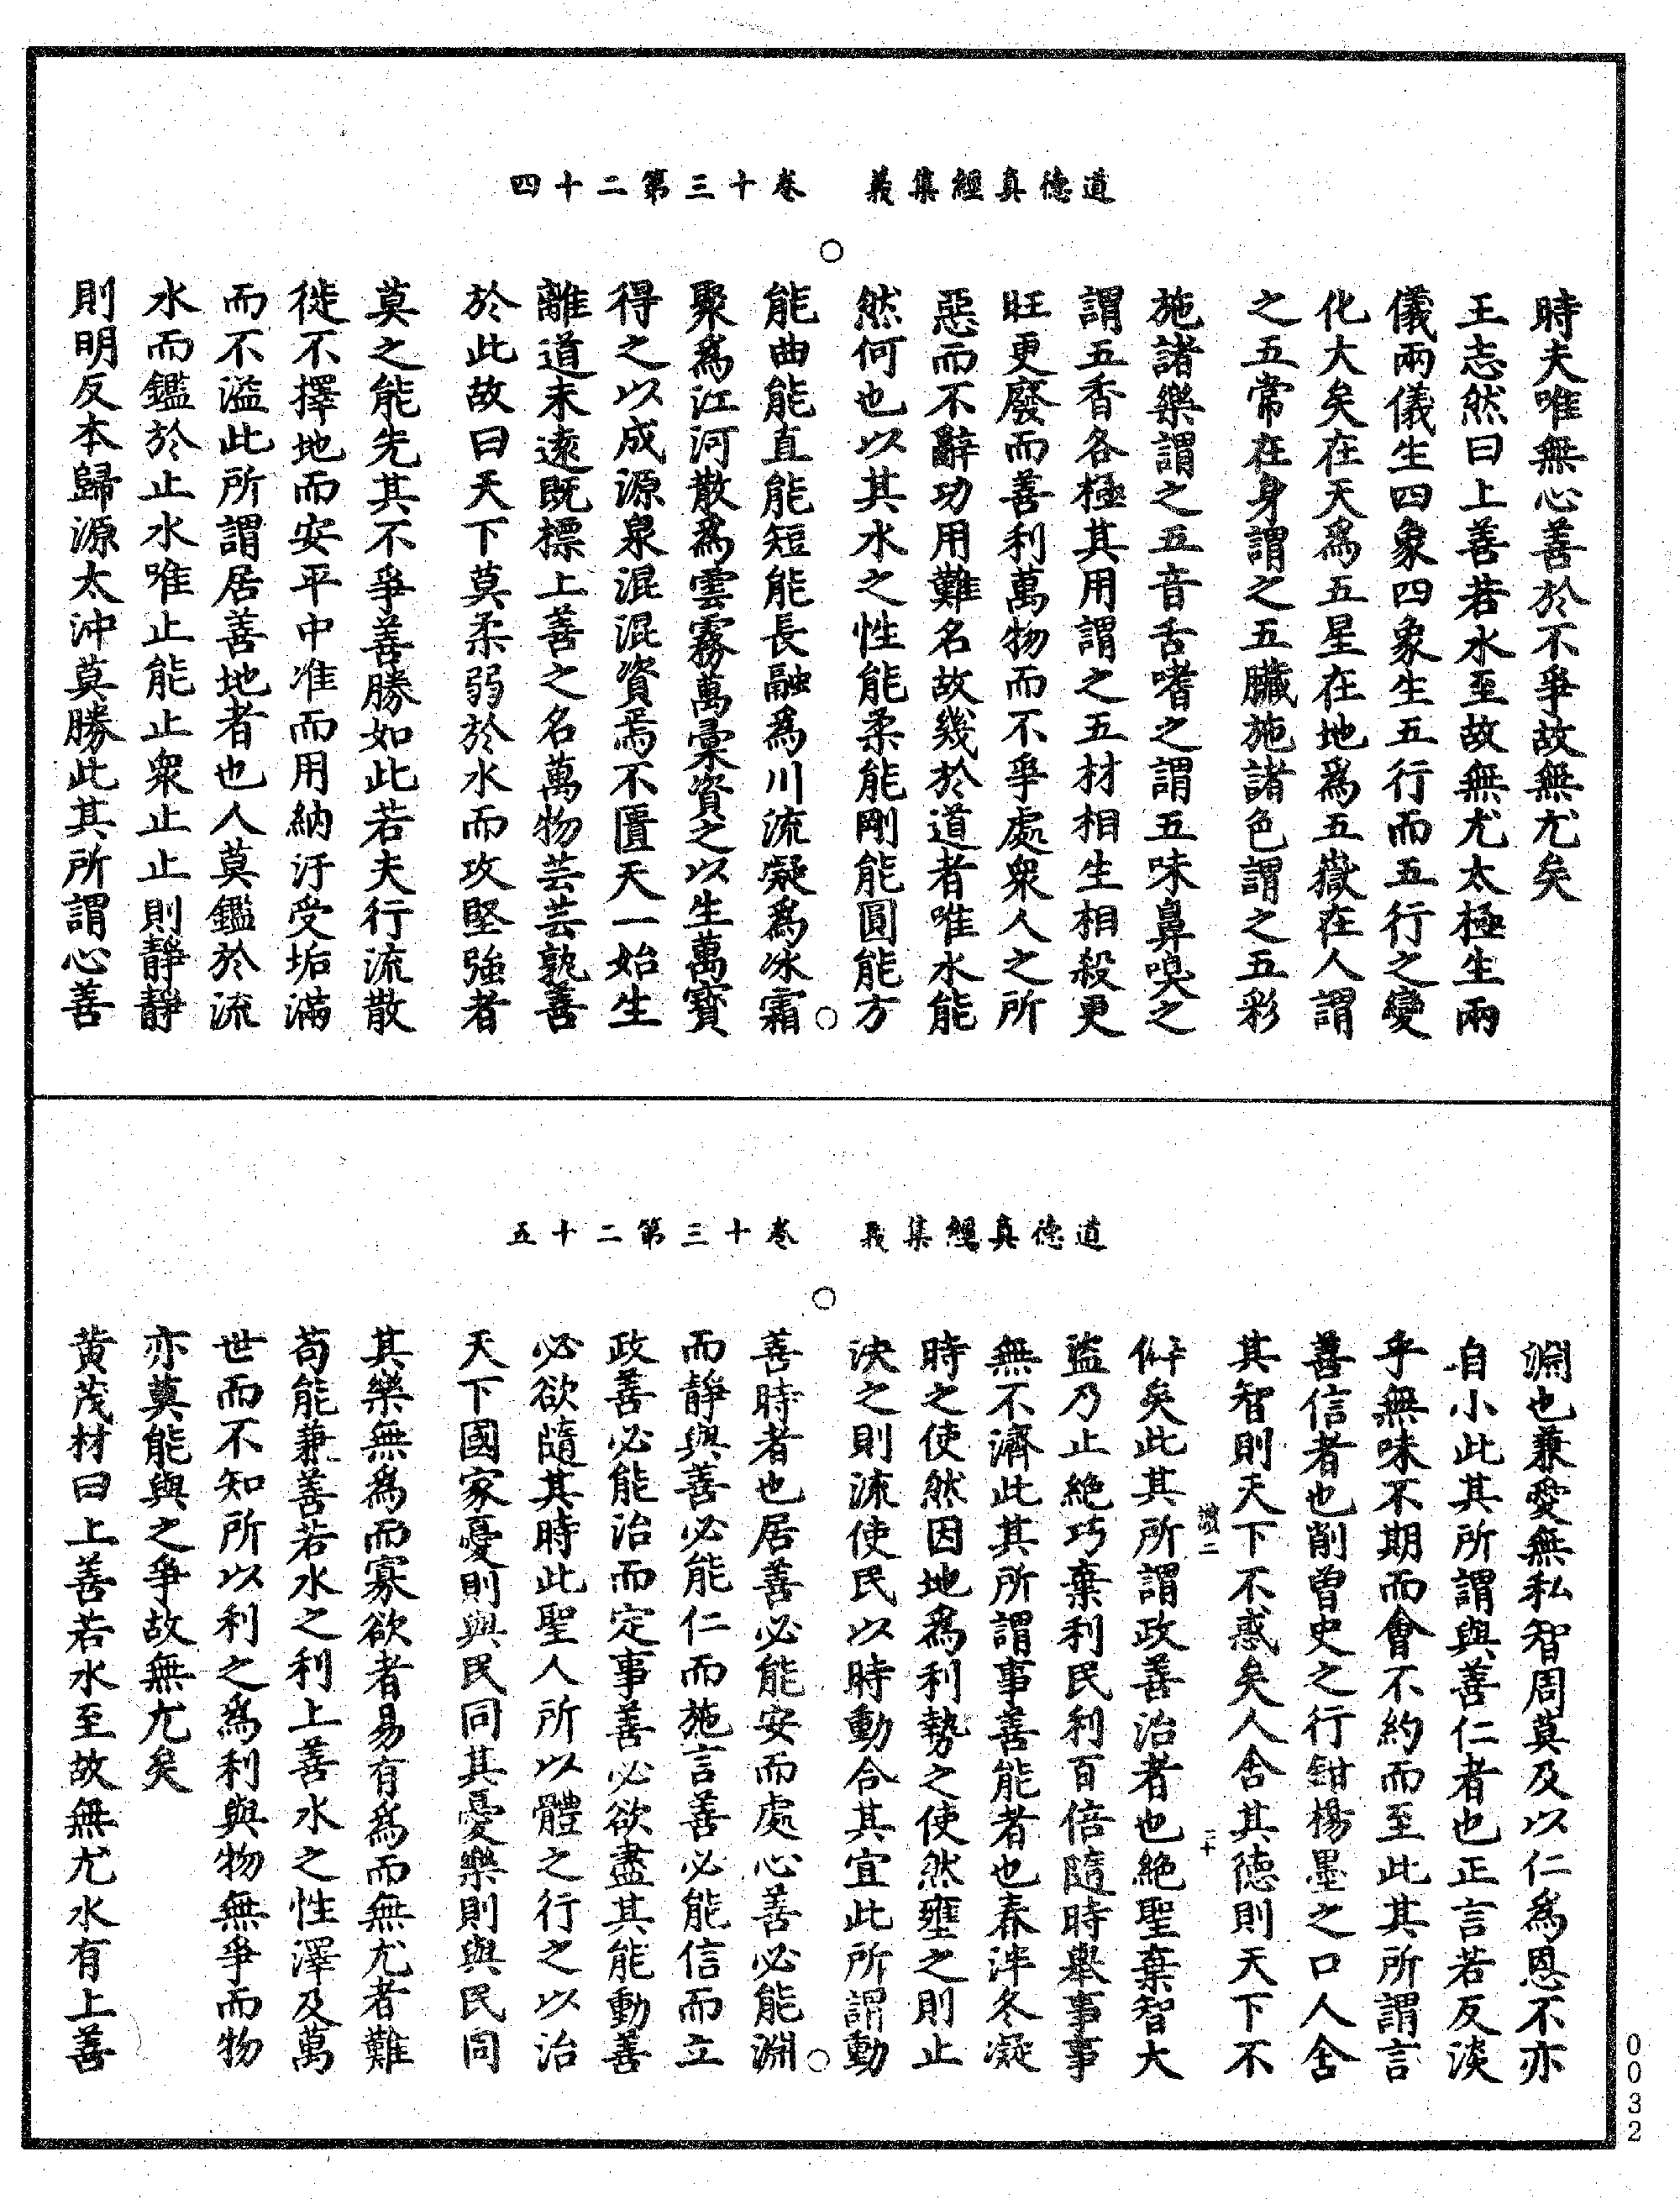 道德真經集義　卷十三第二十四
時夫唯無心善於不爭故無尤矣
王志然曰上善若水至故無尤太極生兩
儀兩儀生四象四象生五行而五行之變
化大矣在天爲五星在地爲五嶽在人謂
之五常在身謂之五臟施諸色謂之五彩
施諸樂謂之五音舌嗜之謂五味鼻嗅之
謂五香各極其用謂之五材相生相殺更
旺更廢而善利萬物而不爭處衆人之所
惡而不辭功用難名故幾於道者唯水能
然何也以其水之性能柔能剛能圓能方
能曲能直能短能長融爲川流凝爲冰霜
聚爲江河散爲雲霧萬彙資之以生萬寶
得之以成源泉混混資焉不匱天一始生
離道未遠既標上善之名萬物芸芸孰善
於此故曰天下莫柔弱於水而攻堅強者
莫之能先其不爭善勝如此若夫行流散
徙不擇地而安平中准而用納汙受垢滿
而不溢此所謂居善地者也人莫鑑於流
水而鑑於止水唯止能止衆止止則靜靜
則明反本歸源太沖莫勝此其所謂心善
道德真經集義　卷十三第二十五
淵也兼愛無私智周莫及以仁爲恩不亦
自小此其所謂與善仁者也正言若反淡
乎無味不期而會不約而至此其所謂言
善信者也削曾史之行鉗楊墨之口人舍
其智則天下不惑矣人舍其德則天下不
二十
僻矣此其所謂政善治者也絕聖棄智大
盜乃止絕巧棄利民利百倍隨時舉事事
無不濟此其所謂事善能者也春泮冬凝
時之使然因地爲利勢之使然壅之則止
決之則流使民以時動合其宜此所謂動
善時者也居善必能安而處心善必能淵
而靜與善必能仁而施言善必能信而立
政善必能治而定事善必欲盡其能動善
必欲隨其時此聖人所以體之行之以治
天下國家憂則與民同其憂樂則與民同
其樂無爲而寡欲者易有爲而無尤者難
苟能兼善若水之利上善水之性澤及萬
世而不知所以利之爲利與物無爭而物
亦莫能與之爭故無尤矣
黃茂材曰上善若水至故無尤水有上善
0032